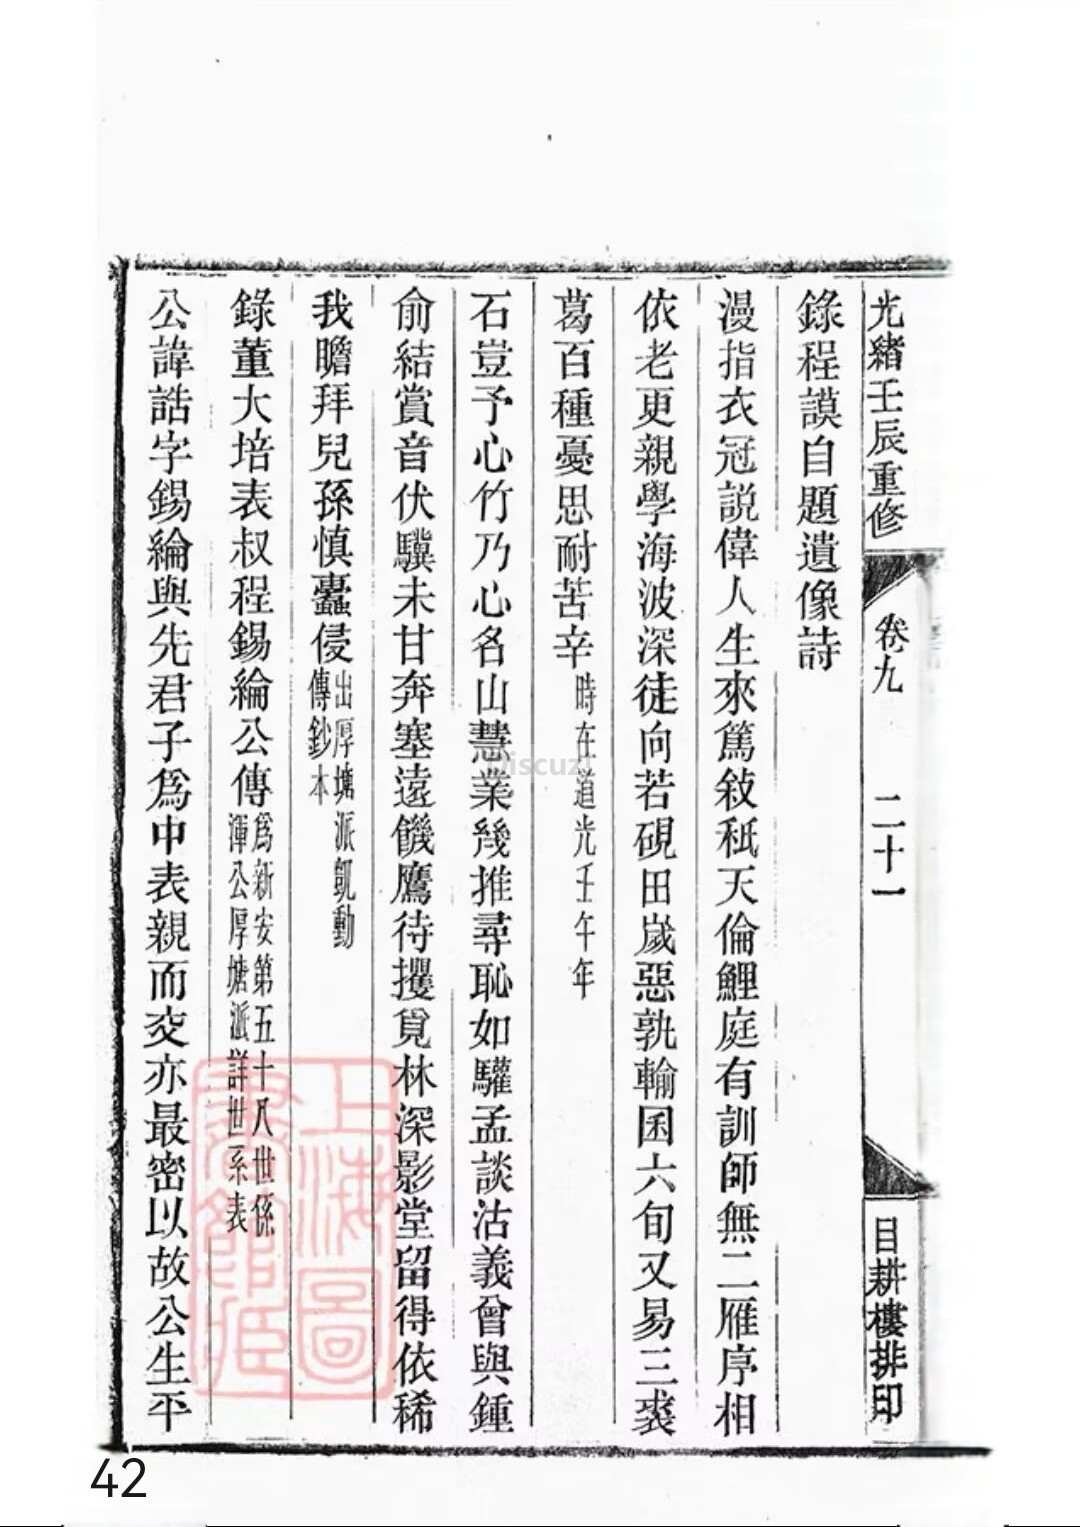 光緒壬辰重修
卷九
二十一
目耕樓排印
錄程謨自題遺像詩
漫指衣冠説偉人生來篤敍秖天倫鯉庭有訓師無二雁序相
依老更親學海波深徒向若硯田歲惡孰輸囷六旬又易三裘
葛百種憂思耐苦辛時在道光壬午年
石豈予心竹乃心名山慧業幾推尋恥如驩孟談沽義曾與鍾
俞結賞音伏驥未甘奔塞遠饑鷹待攫覓林深影堂留得依稀
我瞻拜兒孫慎蠹侵出厚塘派凱動
傳鈔本
錄董大培表叔程錫綸公傳爲新安第五十八世係
渾公厚塘派詳世系表
公諱誥字錫綸與先君子爲中表親而交亦最密以故公生平
上海圖
書館藏
Discuz!
42